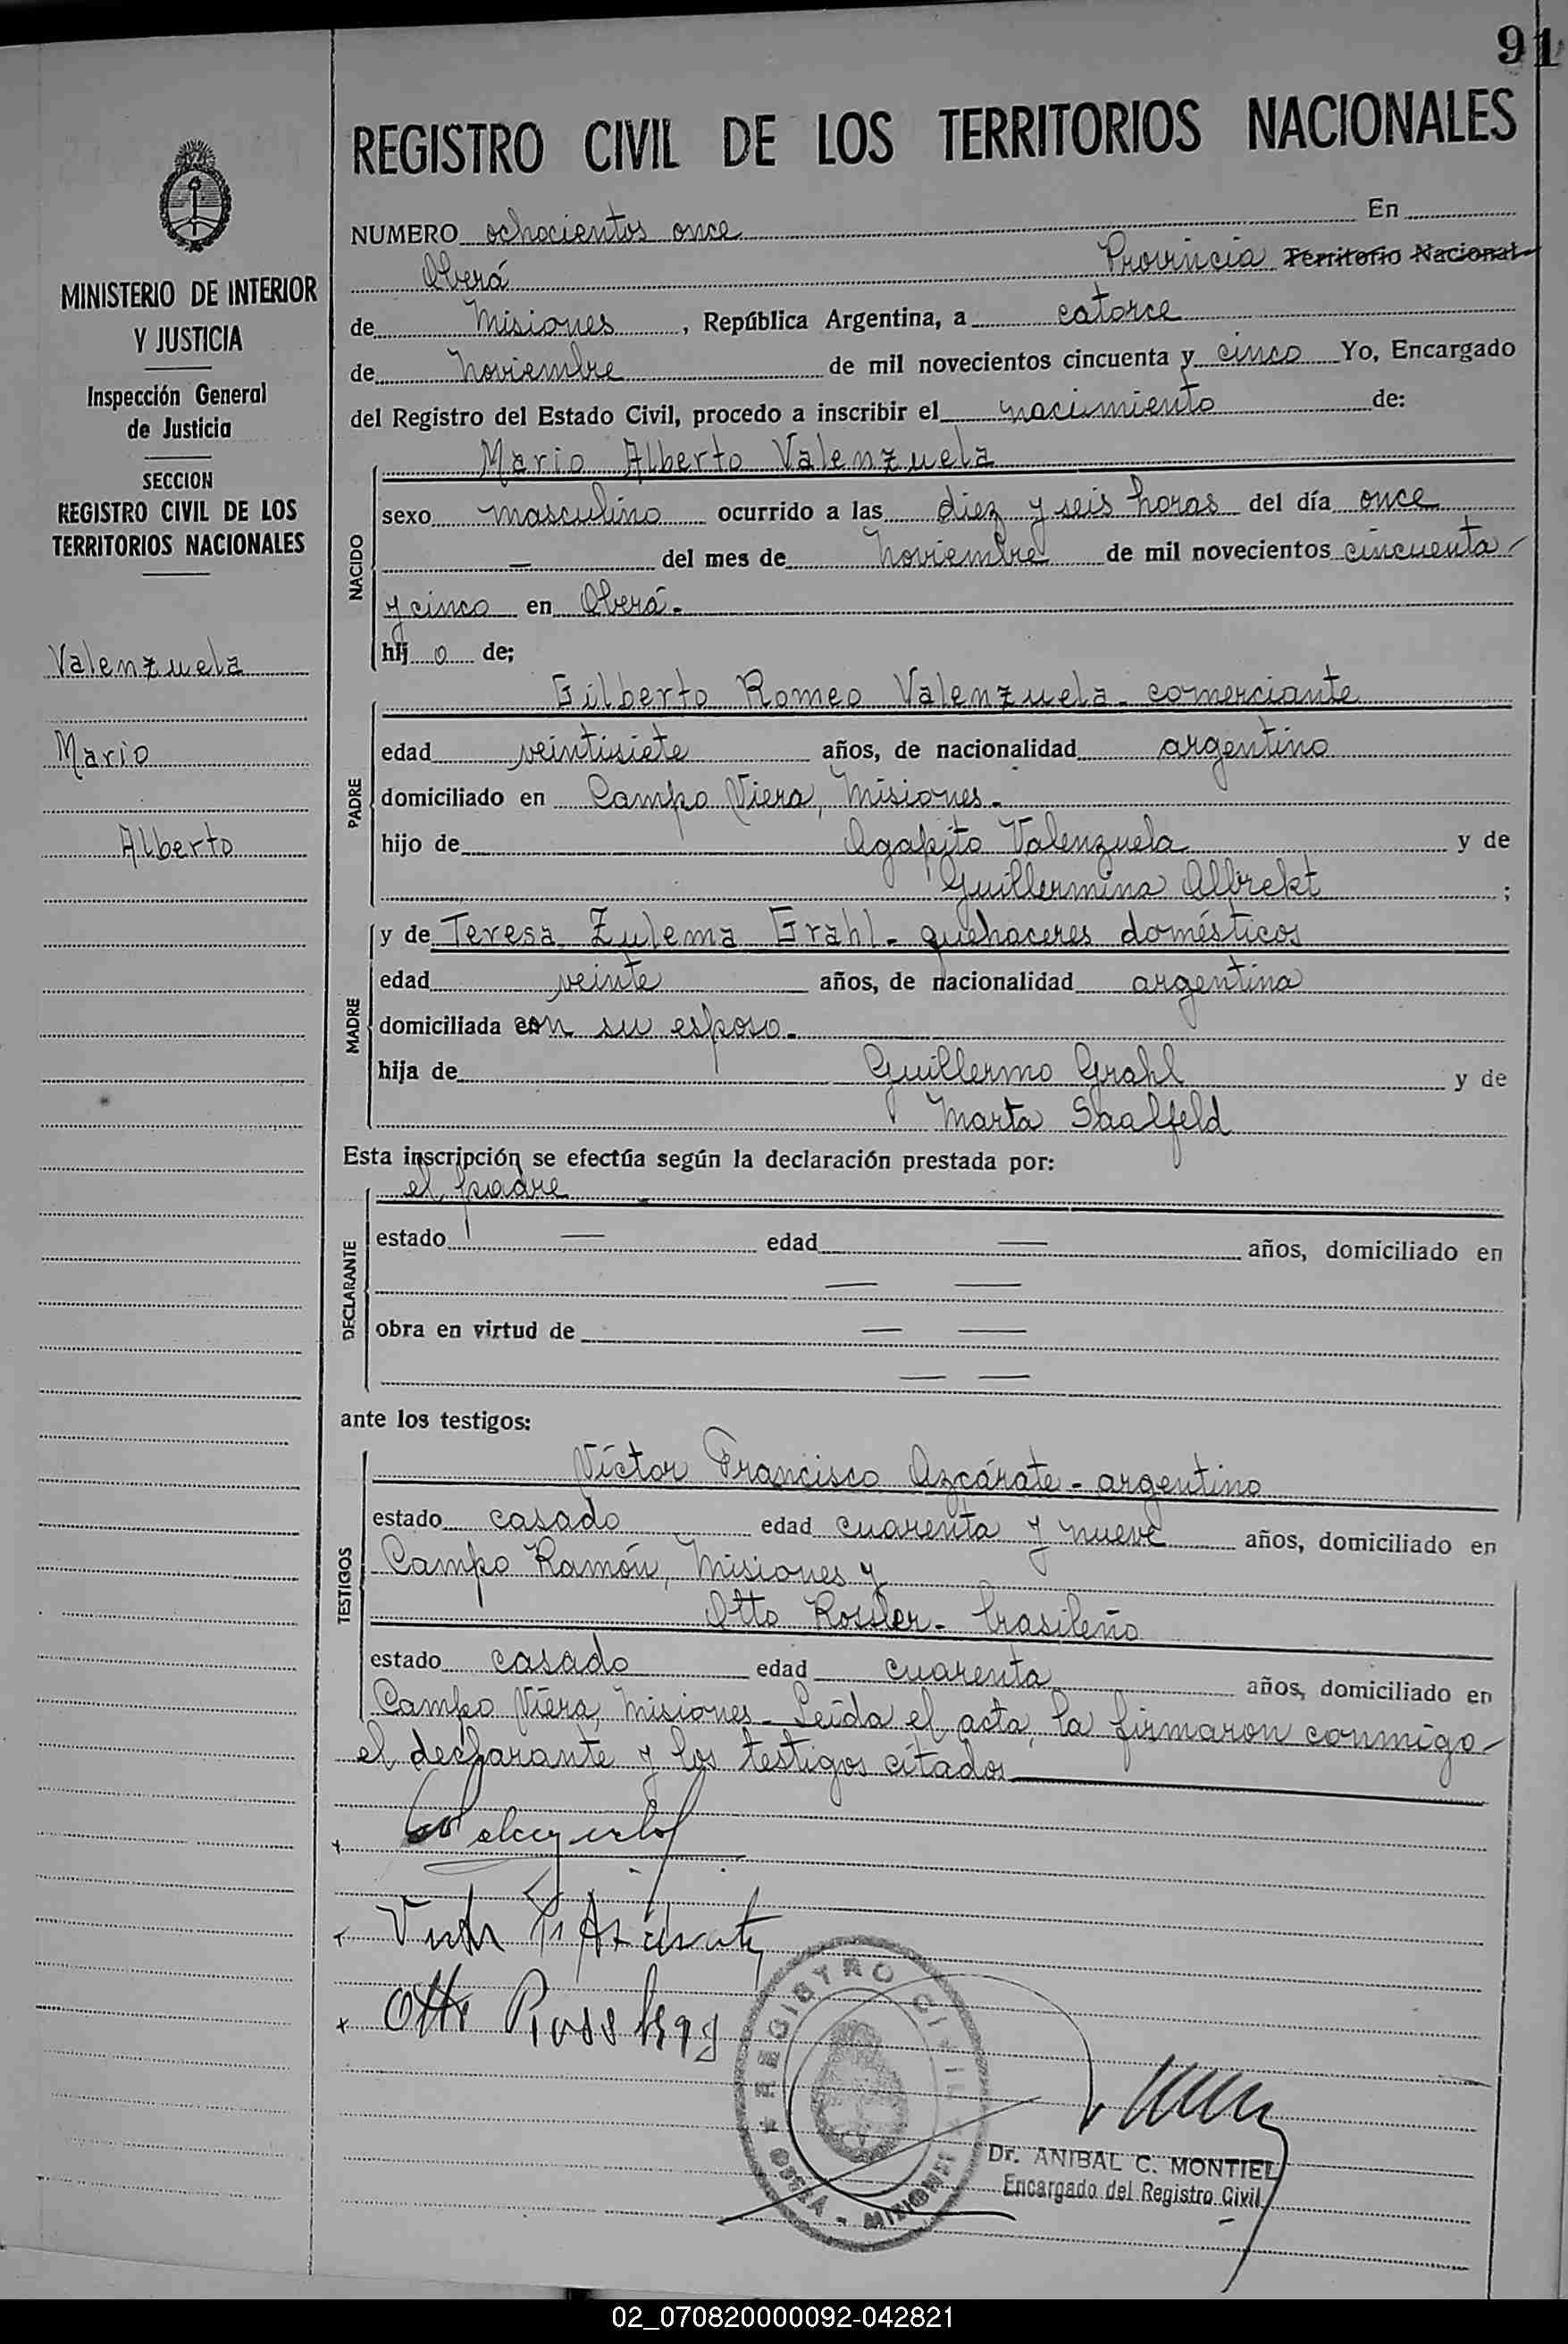 91
REGISTRO CIVIL DE LOS TERRITORIOS NACIONALES
MINISTERIO DE INTERIOR
Y JUSTICIA
Inspección General
de Justicia
SECCION
REGISTRO CIVIL DE LOS
TERRITORIOS NACIONALES
Valenzuela
Mario
Alberto
NUMERO ochocientos once En
Oberá Provincia Territorio Nacional
de Misiones, República Argentina, a catorce
de Noviembre de mil novecientos cincuenta y cinco Yo, Encargado
del Registro del Estado Civil, procedo a inscribir el nacimiento de:
NACIDO
Mario Alberto Valenzuela
sexo masculino ocurrido a las diez y seis horas del día once
— del mes de Noviembre de mil novecientos cincuenta
y cinco en Oberá.
hijo de;
PADRE
Gilberto Romeo Valenzuela - comerciante
edad veintisiete años, de nacionalidad argentino
domiciliado en Campo Viera, Misiones.
hijo de Agapito Valenzuela y de
Guillermina Albrekt;
MADRE
y de Teresa Zulema Grahl - quehaceres domésticos
edad veinte años, de nacionalidad argentina
domiciliada con su esposo.
hija de Guillermo Grahl y de
Marta Saalfeld
Esta inscripción se efectúa según la declaración prestada por:
DECLARANTE
el padre
estado — edad — años, domiciliado en
— —
obra en virtud de — —
— —
ante los testigos:
TESTIGOS
Víctor Francisco Azcárate - argentino
estado casado edad cuarenta y nueve años, domiciliado en
Campo Ramón, Misiones y
Otto Rossler - brasileño
estado casado edad cuarenta años, domiciliado en
Campo Viera, Misiones - Leída el acta, la firmaron conmigo
el declarante y los testigos citados
Otto
REGISTRO CIVIL
OBERA - MISIONES
Dr. ANIBAL C. MONTIEL
Encargado del Registro Civil
02_070820000092-042821